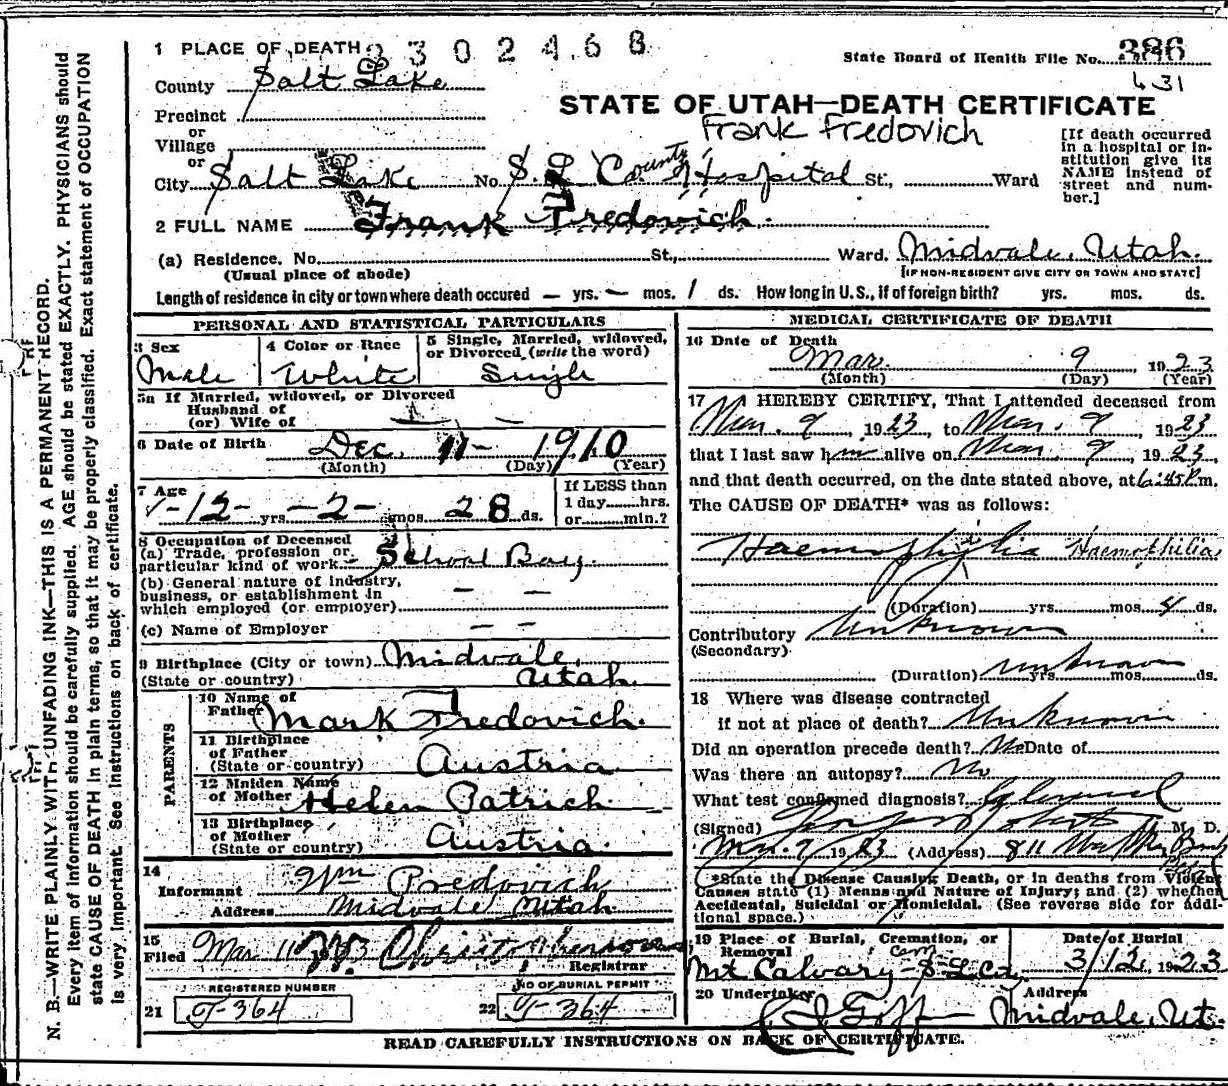 1 PLACE OF DEATH 2302468
State Board of Health File No. 386
County Salt Lake
631
Precinct
STATE OF UTAH—DEATH CERTIFICATE
or
Frank Fredovich
Village
or
[If death occurred in a hospital or institution give its NAME instead of street and number.]
City Salt Lake No. S L County Hospital St., Ward
2 FULL NAME Frank Fredovich.
(a) Residence. No. St., Ward. Midvale, Utah.
(Usual place of abode) [IF NON-RESIDENT GIVE CITY OR TOWN AND STATE]
Length of residence in city or town where death occured — yrs. — mos. 1 ds. How long in U. S., if of foreign birth? yrs. mos. ds.
PERSONAL AND STATISTICAL PARTICULARS
3 Sex
Male
4 Color or Race
White
5 Single, Married, widowed,
or Divorced (write the word)
Single
5a If Married, widowed, or Divorced
Husband of
(or) Wife of — —
6 Date of Birth Dec. 11- 1910
(Month) (Day) (Year)
7 Age
-12- yrs. -2- mos. 28 ds.
If LESS than
1 day hrs.
or min.?
8 Occupation of Deceased
(a) Trade, profession or
particular kind of work School Boy.
(b) General nature of industry,
business, or establishment in
which employed (or employer) — —
(c) Name of Employer — —
9 Birthplace (City or town) Midvale,
(State or country) Utah.
PARENTS
10 Name of
Father Mark Fredovich.
11 Birthplace
of Father
(State or country) Austria
12 Maiden Name
of Mother Helen Patrich
13 Birthplace
of Mother
(State or country) Austria.
14
Informant Wm Predovich
Address Midvale Utah
15
Filed Mar. 11
Registrar
REGISTERED NUMBER
21 T-364
NO OF BURIAL PERMIT
22 T-364
MEDICAL CERTIFICATE OF DEATH
16 Date of Death
Mar. 9, 1923
(Month) (Day) (Year)
17 I HEREBY CERTIFY, That I attended deceased from
Mar. 9, 1923, to Mar. 9, 1923
that I last saw him alive on Mar. 9, 1923,
and that death occurred, on the date stated above, at 6:45 P.m.
The CAUSE OF DEATH* was as follows:
Haemophilia Haemophilia
(Duration) yrs. mos. 4 ds.
Contributory Unknown
(Secondary)
(Duration) unknown yrs. mos. ds.
18 Where was disease contracted
if not at place of death? Unknown
Did an operation precede death? No Date of
Was there an autopsy? No
What test confirmed diagnosis?
(Signed) M. D.
Mar. 9, 1923 (Address) 811
*State the Disease Causing Death, or in deaths from Violent
Causes state (1) Means and Nature of Injury; and (2) whether
Accidental, Suicidal or Homicidal. (See reverse side for addi-
tional space.)
19 Place of Burial, Cremation, or
Removal
Mt Calvary Cem S. L. Co.
Date of Burial
3/12, 1923
20 Undertaker
Goff
Address
Midvale, Ut.
READ CAREFULLY INSTRUCTIONS ON BACK OF CERTIFICATE.
N. B.—WRITE PLAINLY WITH UNFADING INK—THIS IS A PERMANENT RECORD.
Every item of information should be carefully supplied. AGE should be stated EXACTLY. PHYSICIANS should
state CAUSE OF DEATH in plain terms, so that it may be properly classified. Exact statement of OCCUPATION
is very important. See instructions on back of certificate.